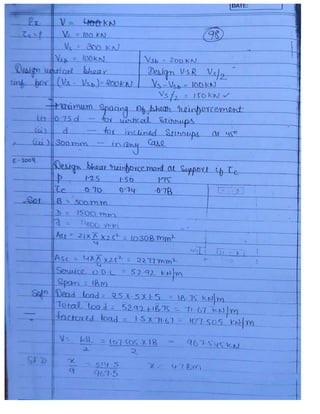 DATE:
Ex V = 400 KN
98
τc = ? Vc = 100 KN
Vs = 300 KN
VSB = 100 KN VSB = 200 KN
Design vertical shear Design VSR Vs/2
(Vs - VSB) = 200 KN Vs - VSB = 100 KN
Vs/2 = 150 KN ✓
Maximum Spacing of shear reinforcement
(i) 0.75d - for vertical stirrups
(ii) d - for inclined stirrups at 45°
(iii) 300mm - in any case
E-2009 Design shear reinforcement at support if τc
P 1.25 1.50 1.75
τc 0.70 0.74 0.78
B = 500mm
D = 1500 mm
d = 1400 mm
Ast = 21 x π/4 x 25² = 10308 mm²
Asc = 4 x π/4 x 25² = mm²
Service U.D.L = 52.92 KN/m
Span = 18m
Solⁿ Dead load = 25 x .5 x 1.5 = 18.75 KN/m
Total load = 52.92 + 18.75 = 71.67 KN/m
factored load = 1.5 x 71.67 = 107.505 KN/m
V = WL/2 = 107.505 x 18/2 = 967.545 KN
S.F.D x/9 = 514.5/967.5 x = 4.78m